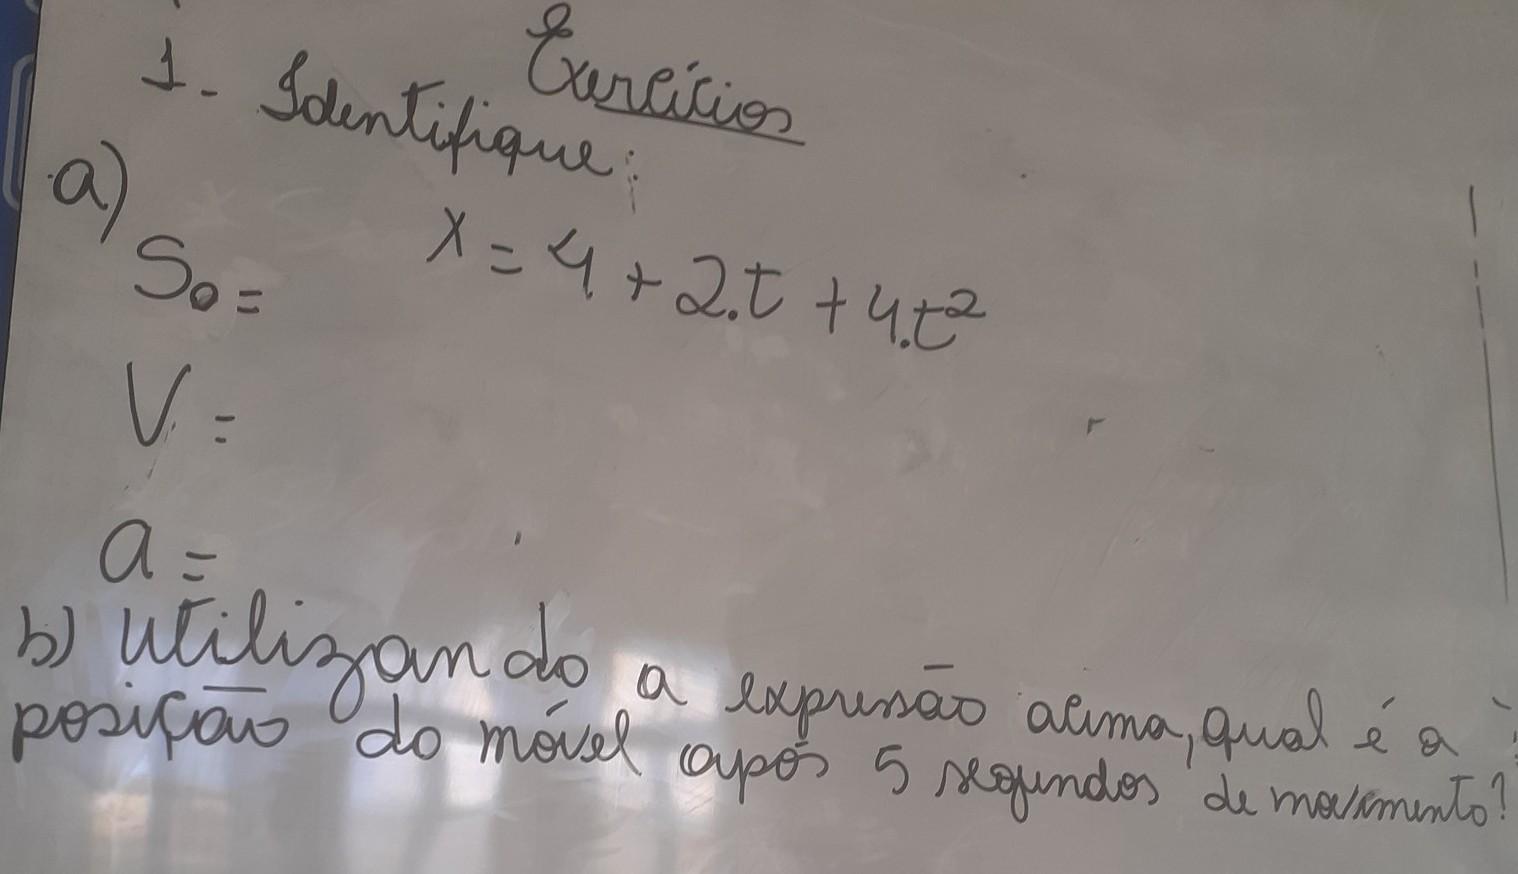 Exercícios
1- Identifique:
a)
x = 4 + 2.t + 4.t²
S₀ =
V =
a =
b) Utilizando a expressão acima, qual é a
posição do móvel após 5 segundos de movimento?